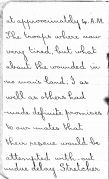 at approximately 4. A.M.
The troops where now
very tired, but what
about the wounded in
no man's land, I as
well as others had
made definite promises
to our mates that
their rescue would be
attempted with-out
undue delay. Stretcher